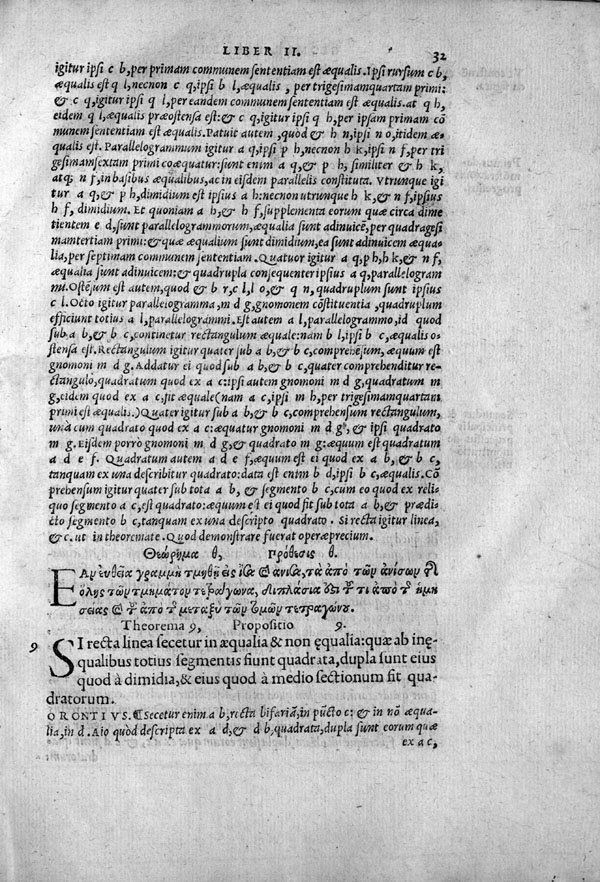 LIBER II. 32
igitur ipsi c b, per primam communem sententiam est æqualis. Ipsi rursum c b,
æqualis est q l, necnon c q, ipsi b l, æqualis, per trigesimamquartam primi:
& c q, igitur ipsi q l, per eandem communem sententiam est æqualis. at q h,
eidem q l, æqualis præostensa est: & c q, igitur ipsi q h, per ipsam primam cō
munem sententiam est æqualis. Patuit autem, quod & h n, ipsi n o, itidem æ-
qualis est. Parallelogrammum igitur a q, ipsi p h, necnon h k, ipsi n f, per tri
gesimamsextam primi coæquatur: sunt enim a q, & p h, similiter & h k,
atq; n f, in basibus æqualibus, ac in eisdem parallelis constituta. Vtrunque igi
tur a q, & p h, dimidium est ipsius a h: necnon utrunque h k, & n f, ipsius
h f, dimidium. Et quoniam a h, & h f, supplementa eorum quæ circa dime
tientem e d, sunt parallelogrammorum, æqualia sunt adinuicē, per quadragesi
mamtertiam primi: & quæ æqualium sunt dimidium, ea sunt adinuicem æqua-
lia, per septimam communem sententiam. Quatuor igitur a q, p h, h k, & n f,
æqualia sunt adinuicem: & quadrupla consequenter ipsius a q, parallelogram
mu. Ostēsum est autem, quod & b r, c l, l o, & q n, quadruplum sunt ipsius
c l. Octo igitur parallelogramma, m d g, gnomonem cōstituentia, quadruplum
efficiunt totius a l, parallelogrammi. Est autem a l, parallelogrammo, id quod
sub a b, & b c, continetur rectangulum æquale: nam b l, ipsi b c, æqualis o-
stensa est. Rectangulum igitur quater sub a b, & b c, comprehēsum, æquum est
gnomoni m d g. Addatur ei quod sub a b, & b c, quater comprehenditur re-
ctangulo, quadratum quod ex a c: ipsi autem gnomoni m d g, quadratum m
g, eidem quod ex a c, sit æquale (nam a c, ipsi m h, per trigesimamquartam
primi est æqualis.) Quater igitur sub a b, & b c, comprehensum rectangulum,
una cum quadrato quod ex a c: æquatur gnomoni m d g, & ipsi quadrato
m g. Eisdem porrò gnomoni m d g, & quadrato m g: æquum est quadratum
a d e f. Quadratum autem a d e f, æquum est ei quod ex a b, & b c,
tanquam ex una describitur quadrato: data est enim b d, ipsi b c, æqualis. Cō
prehensum igitur quater sub tota a b, & segmento b c, cum eo quod ex reli-
quo segmento a c, est quadrato: æquum est ei quod fit sub tota a b, & prædi-
cto segmento b c, tanquam ex una descripto quadrato. Si recta igitur linea,
& c. ut in theoremate. Quod demonstrare fuerat operæprecium.
Θεώρημα θ, πρόθεσις θ.
Εὰν εὐθεῖα γραμμὴ τμηθῇ εἰς ἴσα καὶ ἄνισα, τὰ ἀπὸ τῶν ἀνίσων τῆς
ὅλης τῶν τμημάτων τετράγωνα, διπλάσιά ἐστι τοῦ τε ἀπὸ τῆς ἡμι
σείας καὶ τοῦ ἀπὸ τῆς μεταξὺ τῶν τομῶν τετραγώνου.
Theorema 9, Propositio 9.
9 SI recta linea secetur in æqualia & non ęqualia: quæ ab inę-
qualibus totius segmentis fiunt quadrata, dupla sunt eius
quod à dimidia, & eius quod à medio sectionum fit qua-
dratorum.
ORONTIVS. ¶ Secetur enim a b, recta bifariā, in pūcto c: & in nō æqua-
lia, in d. Aio quòd descripta ex a d, & d b, quadrata, dupla sunt eorum quæ
ex a c,